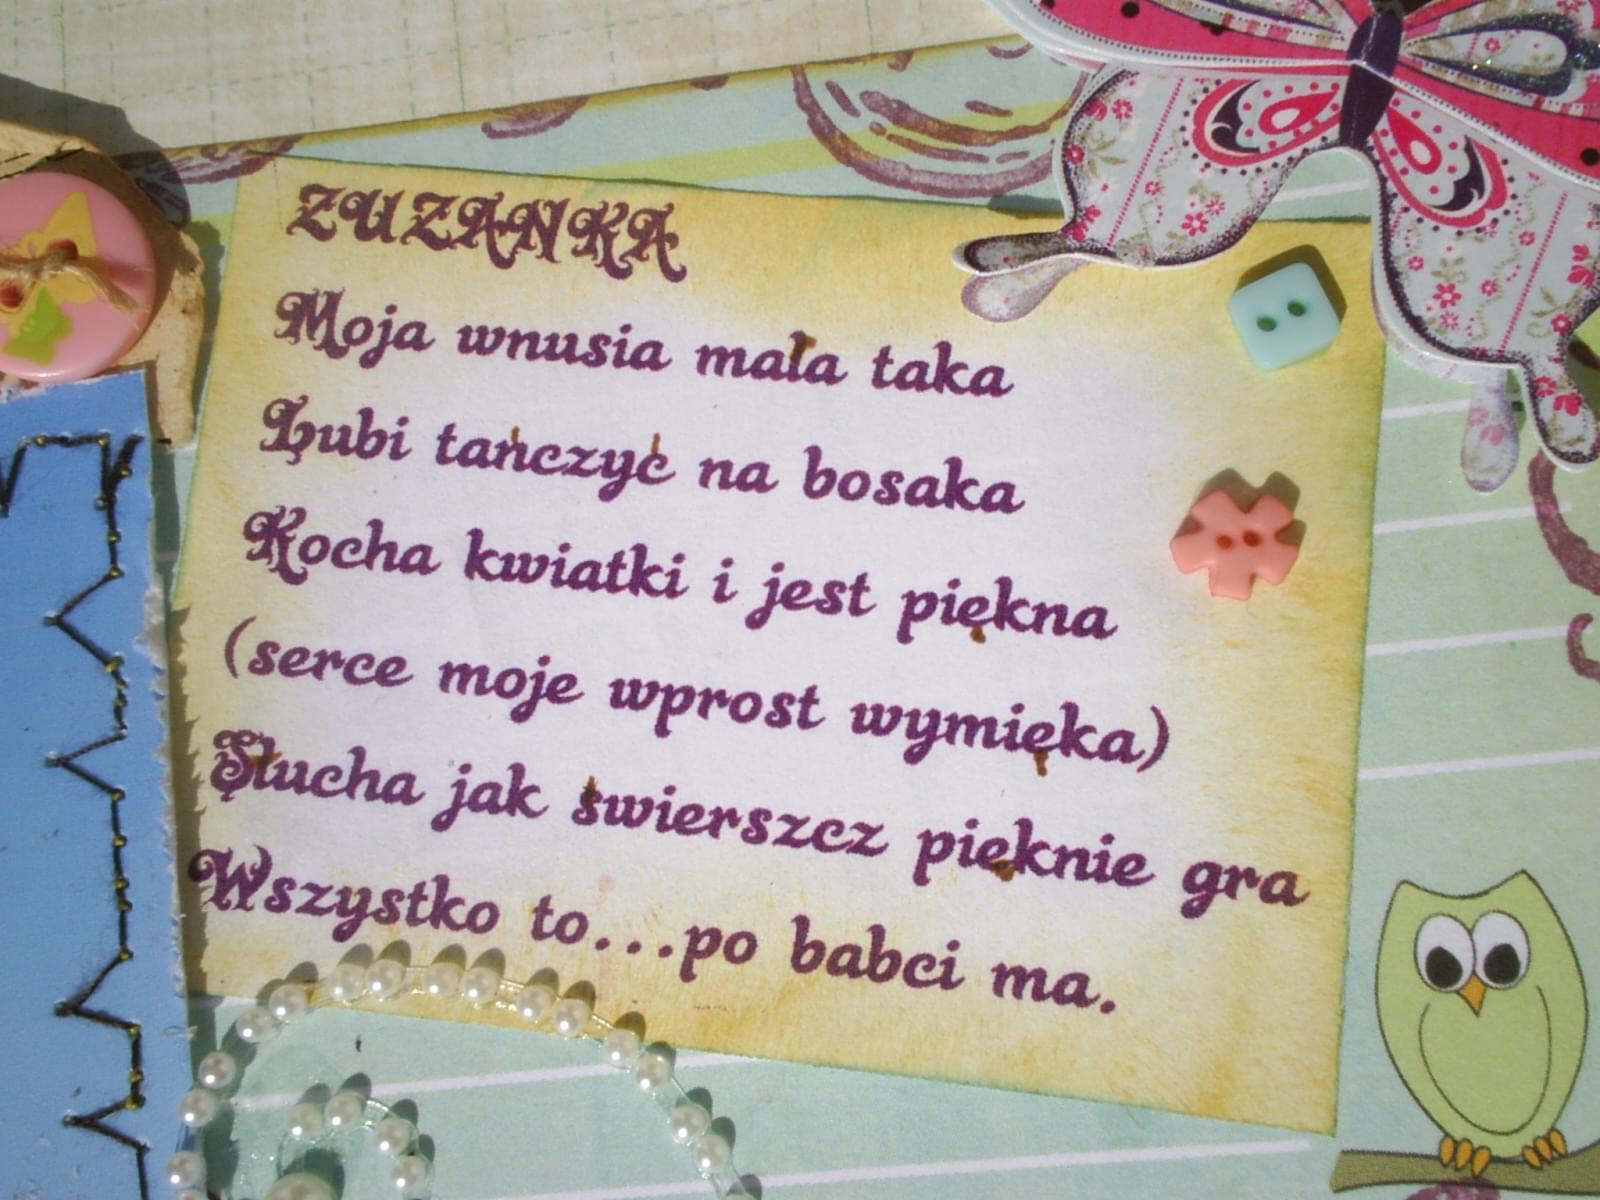 ZUZANKA
Moja wnusia mała taka
Lubi tańczyć na bosaka
Kocha kwiatki i jest piękna
(serce moje wprost wymięka)
Słucha jak świerszcz pięknie gra
Wszystko to...po babci ma.